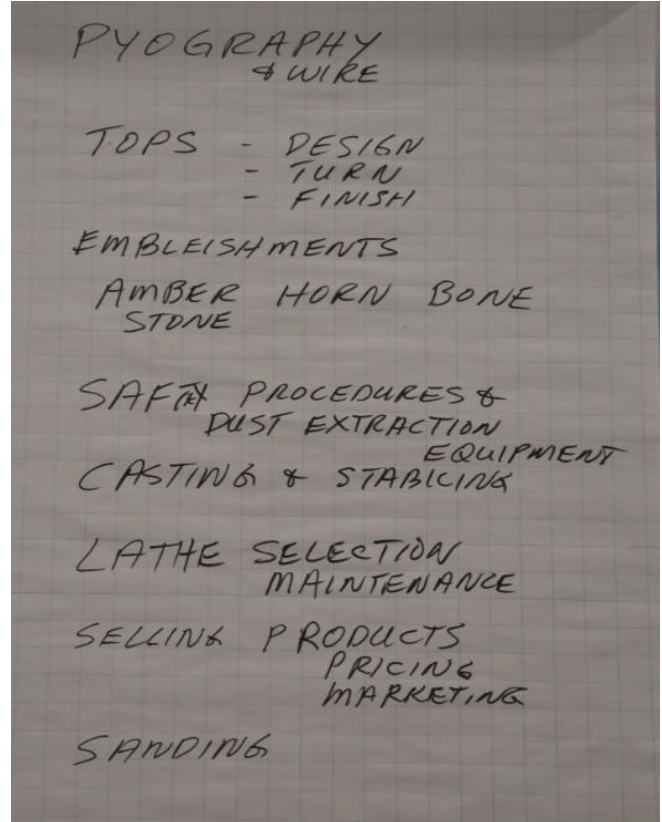 PYOGRAPHY
& WIRE
TOPS - DESIGN
- TURN
- FINISH
EMBLEISHMENTS
AMBER HORN BONE
STONE
SAFTEY PROCEDURES &
DUST EXTRACTION
EQUIPMENT
CASTING & STABILING
LATHE SELECTION
MAINTENANCE
SELLING PRODUCTS
PRICING
MARKETING
SANDING